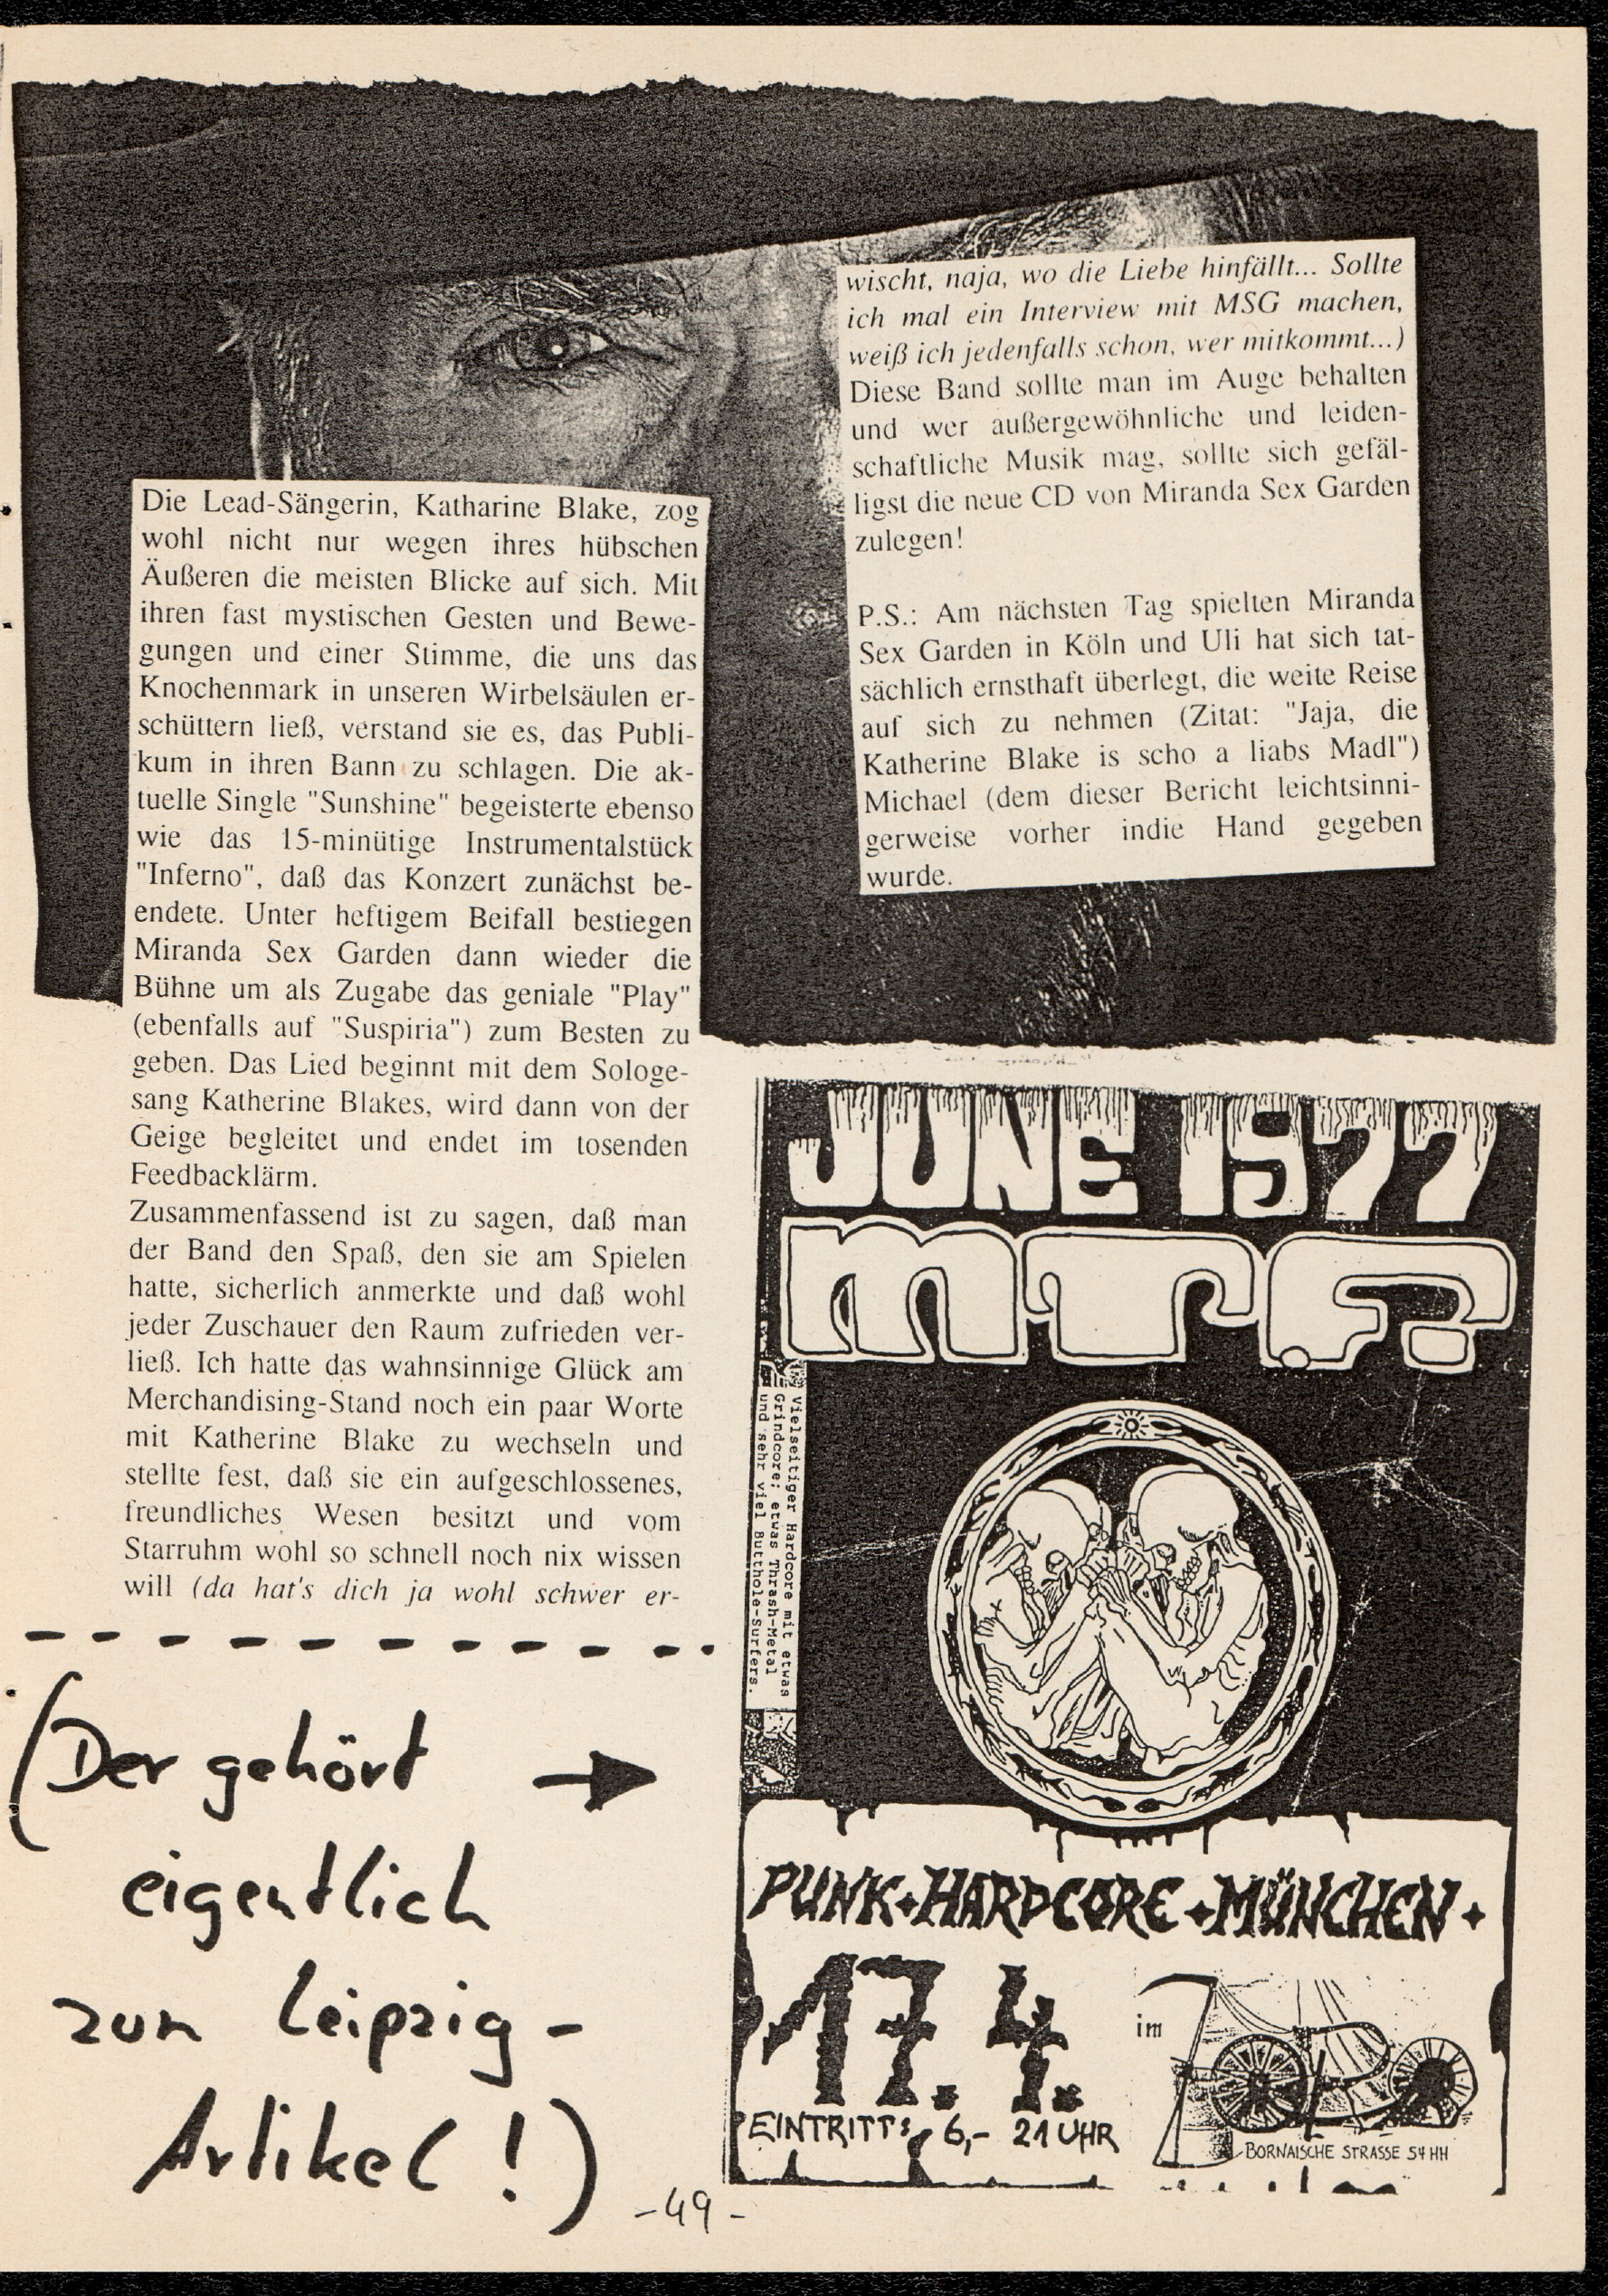 Die Lead-Sängerin, Katharine Blake, zog
wohl nicht nur wegen ihres hübschen
Äußeren die meisten Blicke auf sich. Mit
ihren fast mystischen Gesten und Bewe-
gungen und einer Stimme, die uns das
Knochenmark in unseren Wirbelsäulen er-
schüttern ließ, verstand sie es, das Publi-
kum in ihren Bann zu schlagen. Die ak-
tuelle Single "Sunshine" begeisterte ebenso
wie das 15-minütige Instrumentalstück
"Inferno", daß das Konzert zunächst be-
endete. Unter heftigem Beifall bestiegen
Miranda Sex Garden dann wieder die
Bühne um als Zugabe das geniale "Play"
(ebenfalls auf "Suspiria") zum Besten zu
geben. Das Lied beginnt mit dem Sologe-
sang Katherine Blakes, wird dann von der
Geige begleitet und endet im tosenden
Feedbacklärm.
Zusammenfassend ist zu sagen, daß man
der Band den Spaß, den sie am Spielen
hatte, sicherlich anmerkte und daß wohl
jeder Zuschauer den Raum zufrieden ver-
ließ. Ich hatte das wahnsinnige Glück am
Merchandising-Stand noch ein paar Worte
mit Katherine Blake zu wechseln und
stellte fest, daß sie ein aufgeschlossenes,
freundliches Wesen besitzt und vom
Starruhm wohl so schnell noch nix wissen
will (da hat's dich ja wohl schwer er-
wischt, naja, wo die Liebe hinfällt... Sollte
ich mal ein Interview mit MSG machen,
weiß ich jedenfalls schon, wer mitkommt...)
Diese Band sollte man im Auge behalten
und wer außergewöhnliche und leiden-
schaftliche Musik mag, sollte sich gefäl-
ligst die neue CD von Miranda Sex Garden
zulegen!
P.S.: Am nächsten Tag spielten Miranda
Sex Garden in Köln und Uli hat sich tat-
sächlich ernsthaft überlegt, die weite Reise
auf sich zu nehmen (Zitat: "Jaja, die
Katherine Blake is scho a liabs Madl")
Michael (dem dieser Bericht leichtsinni-
gerweise vorher indie Hand gegeben
wurde.
(Der gehört →
eigentlich
zum Leipzig-
Artikel!)
JUNE 1977
MTF?
Vielseitiger Hardcore mit etwas
Grindcore; etwas Thrash-Metal
und sehr viel Butthole-Surfers.
PUNK+HARDCORE+MÜNCHEN+
17.4.
im
EINTRITT: 6,- 21 UHR
BORNAISCHE STRASSE 54 HH
-49-